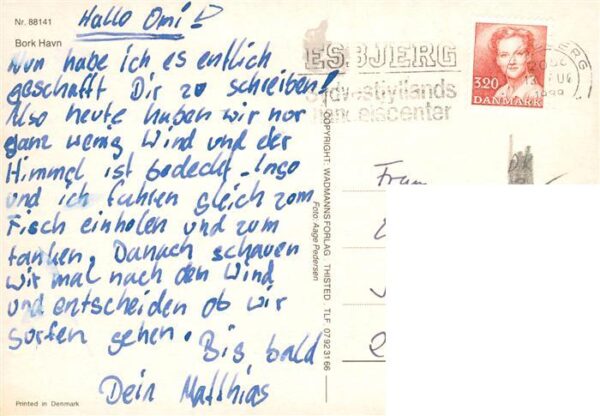 Nr. 88141
Bork Havn
Hallo Omi!
Nun habe ich es entlich
geschafft Dir zu schreiben!
Also heute haben wir nor
ganz wenig Wind und der
Himmel ist bedeckt. Ingo
und ich fahren gleich zom
Fisch einholen und zum
tanken. Danach schauen
wir mal nach den Wind
und entscheiden ob wir
sorfen gehen. Bis bald
Dein Matthias
Printed in Denmark
COPYRIGHT: WADMANNS FORLAG . THISTED . TLF. 07 92 31 66
Foto: Aage Pedersen
ESBJERG
Sydvestjyllands
handelscenter
3.20
DANMARK
Frau